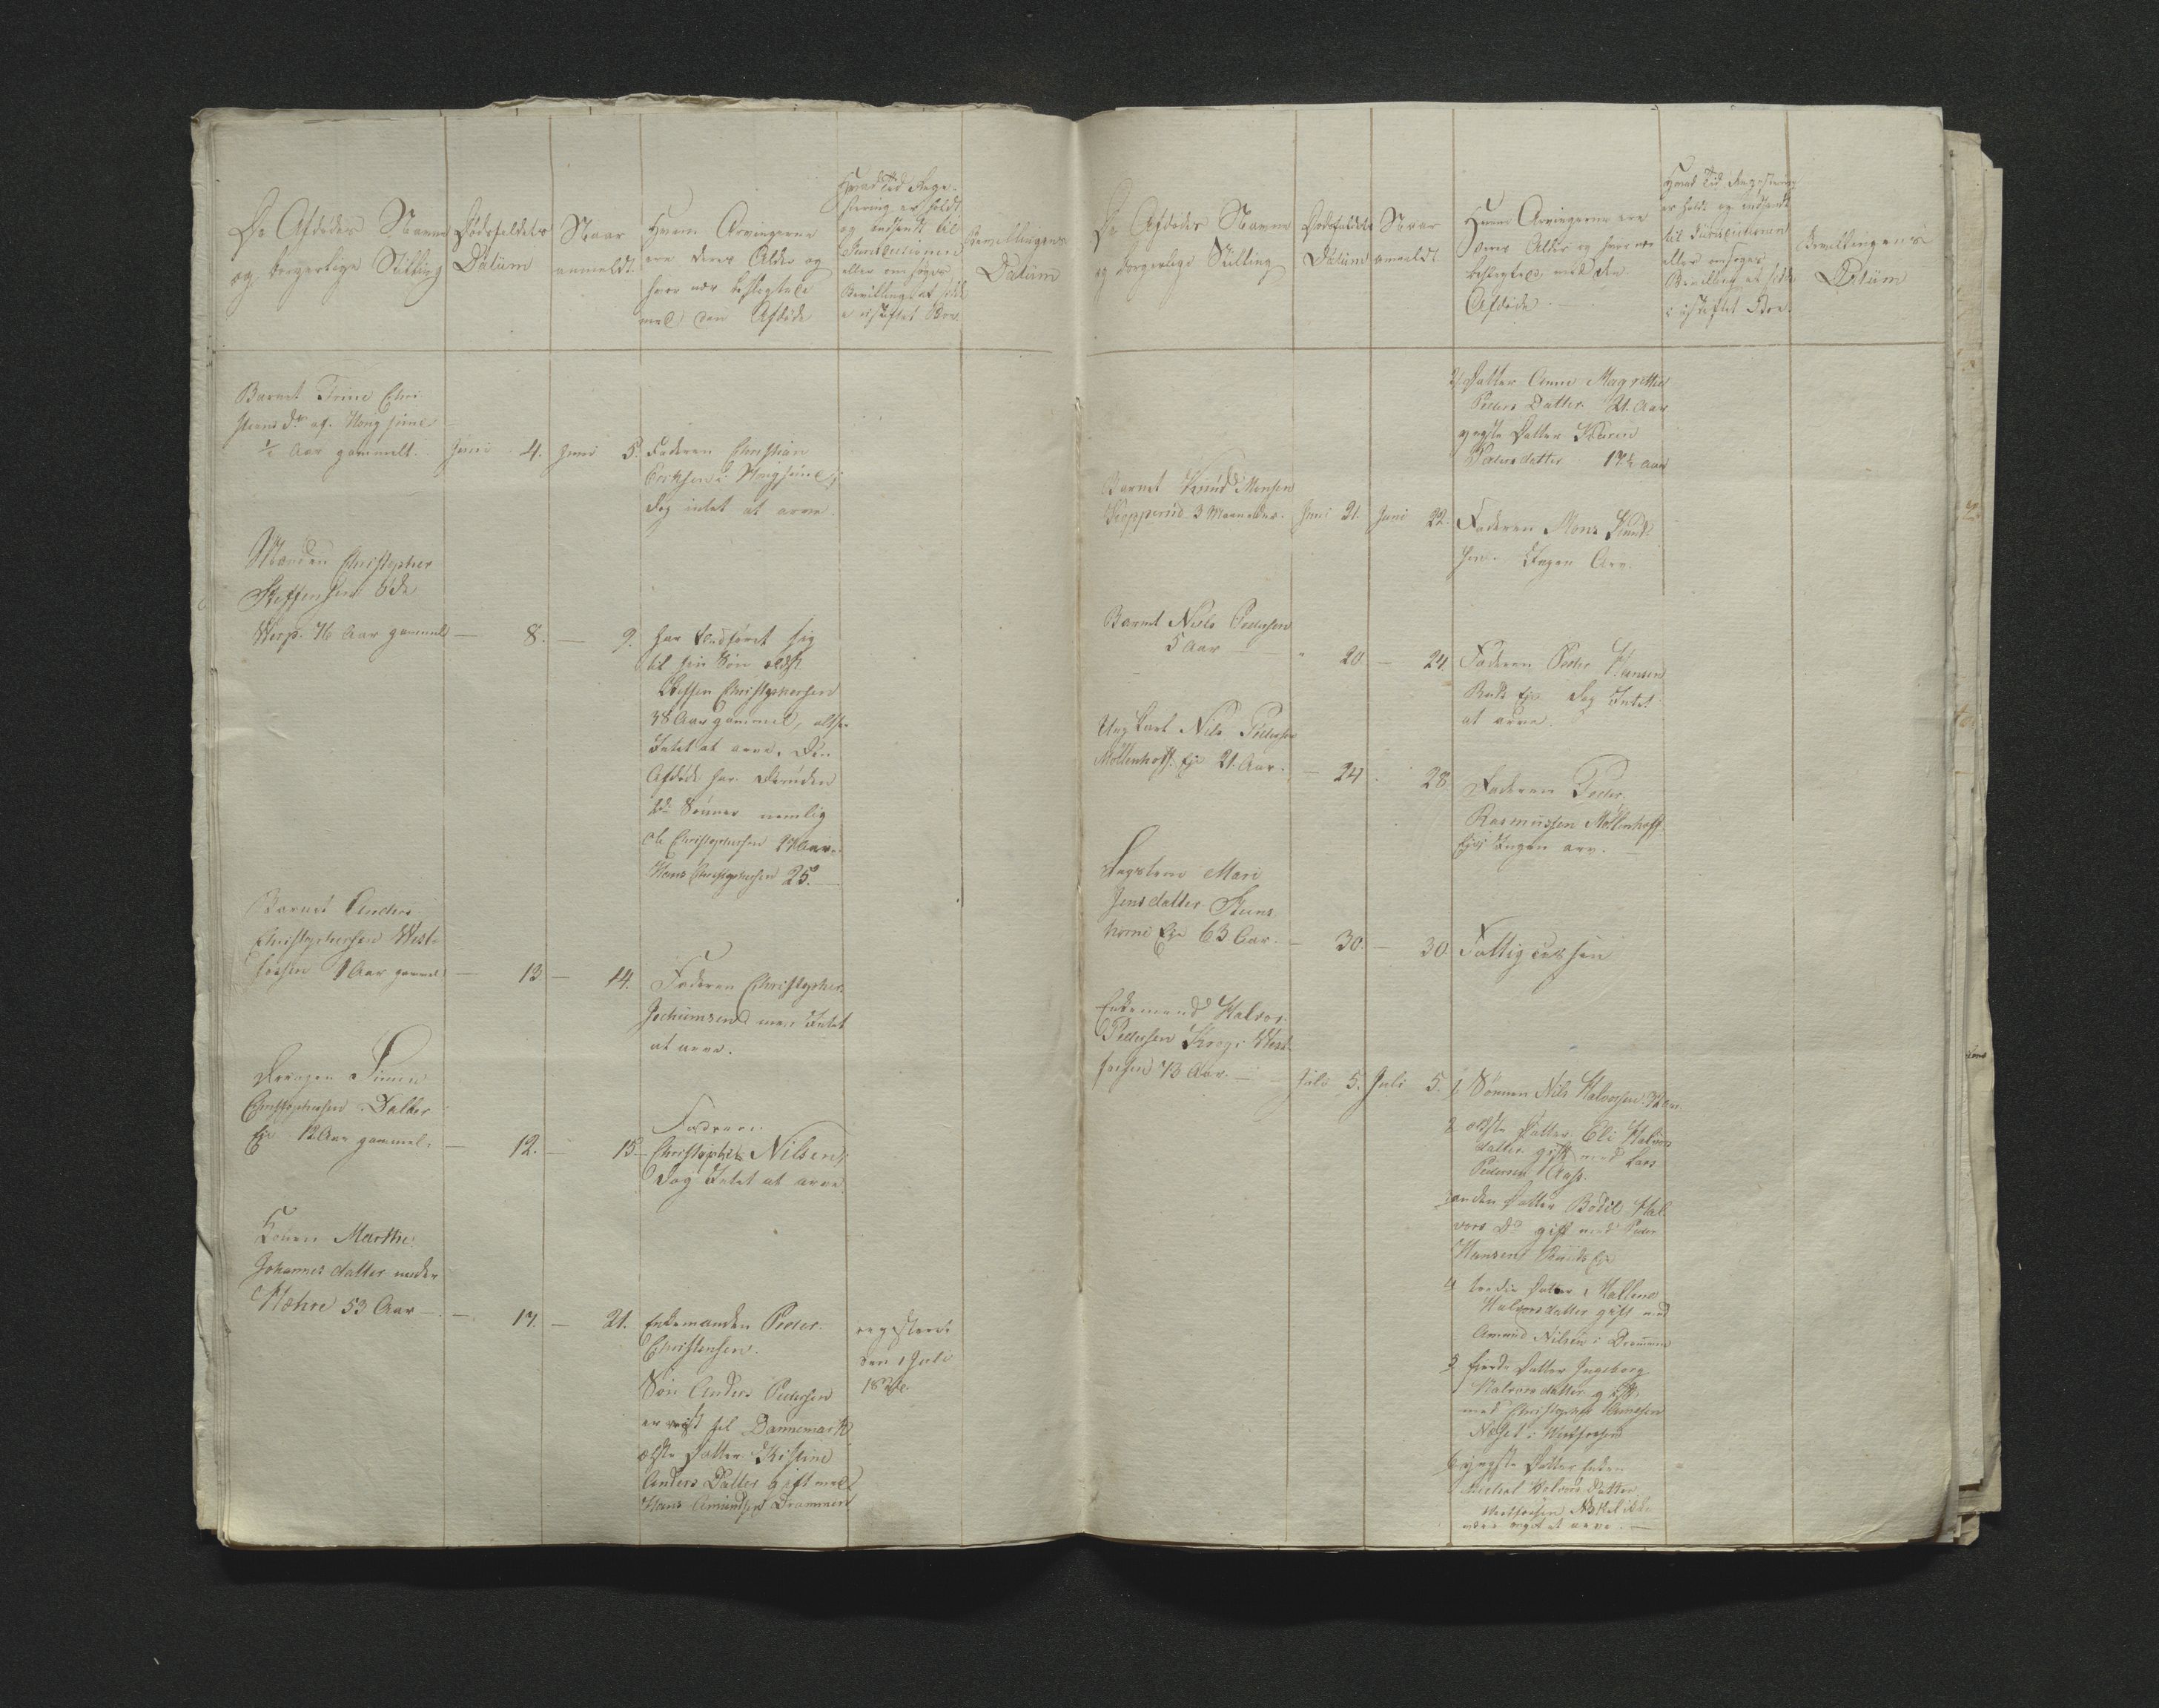 De Afdødes Navne
og borgerlige Stilling
Dødsfaldets
Datum
Naar
anmeldt.
Hvem Arvingerne
ere deres Alder og
hvor nær beslegtede
med den Afdøde
Hvad Tid Rege-
strering er holdt
og indsendt til
Skifteretten
eller om søges
Bevilling at sidde
i uskiftet Boe.
Bevillingens
Datum
Barnet Trine Chri
stians Dr af
1/2 Aar gammelt. Juni 4. Juni 5. Faderen Christian
Eriksen
dog intet at arve.
Manden Christopher
Steffensen Øde
76 Aar gammel — 8. — 9. har
til sin Søn ældst
Steffen Christophersen
38 Aar gammel, altsaa
Intet at arve. Den
Afdøde har desuden
Sønner nemlig
Ole Christophersen 27 Aar.
Hans Christophersen 25.
Barnet Anders
Christophersen West-
fossen 1 Aar gammel — 13 — 14. Faderen Christopher
Jochumsen men Intet
at arve.
Drengen Simen
Christophersen Dalder
Eje 12 Aar gammel. — 12. — 15. Faderen
Christopher Nilsen,
dog Intet at arve.
Konen Marthe
Johannes datter nedre
Mæhre 53 Aar — 17. — 21. Enkemanden Peder
Christensen.
Søn Anders Pedersen
er reist til Dannemark
ældste Datter Kistine
Anders Datter gift med
Hans Amundsen Drammen
registeret
den 1 Juli
De Afdødes Navne
og borgerlige Stilling
Dødsfaldets
Datum
Naar
anmeldt
Hvem Arvingerne ere
deres Alder og hvor nær
beslegtede med den
Afdøde
Hvad Tid Registrering
er holdt og indsendt
til Skifteretten
eller om søges
Bevilling at sidde
i uskiftet Boe.
Bevillingens
Datum
2/ Datter Anne Magrethe
Peders Datter 21 Aar
yngste Datter Karen
Pedersdatter 17½ Aar
Barnet Knud Monsen
Kopperud 3 Maaneder. Juni 21. Juni 22. Faderen Mons Knud-
sen. Ingen Arv.
Barnet Niels Pedersen
5 Aar — " 20 — 24 Faderen Peder Hansen
Ruds Eje dog Intet
at arve.
Ung Karl Nils Pedersen
Møllenhoff. Eje 21. Aar. — 24 28 Faderen Peder
Rasmussen Møllenhoff
Eje Ingen arv.
Mari
Jensdatter Steens
Eje 63 Aar. — 30. — 30 Fattigcassen
Enkemand Halvor
Pedersen Krog i West-
fossen 73 Aar. — Juli 5. Juli 5. 1 Sønnen Nils Halvorsen
2 ældste Datter Eli Halvors
datter gift med Lars
Pedersen
3 anden Datter Bodil Hal
vors Dr gift med Peder
Hansen Ruds Eje
4 tredie Datter
Halvorsdatter gift med
Amund Nilsen i Drammen
5 fierde Datter Ingeborg
Halvorsdatter gift
med Christopher Arnesen
i Westfossen
6 yngste Datter Enken
Halvors Datter
Westfossen
noget at arve. —